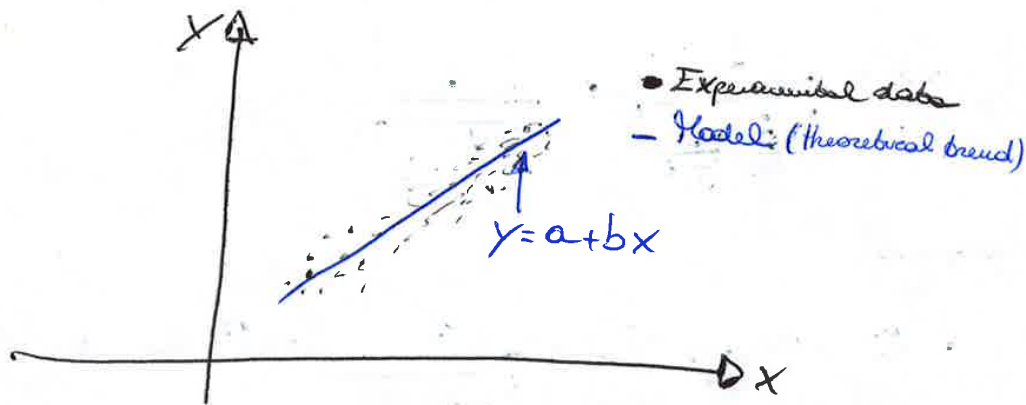 Y
• Experimental data
— Model: (theoretical trend)
y=a+bx
X